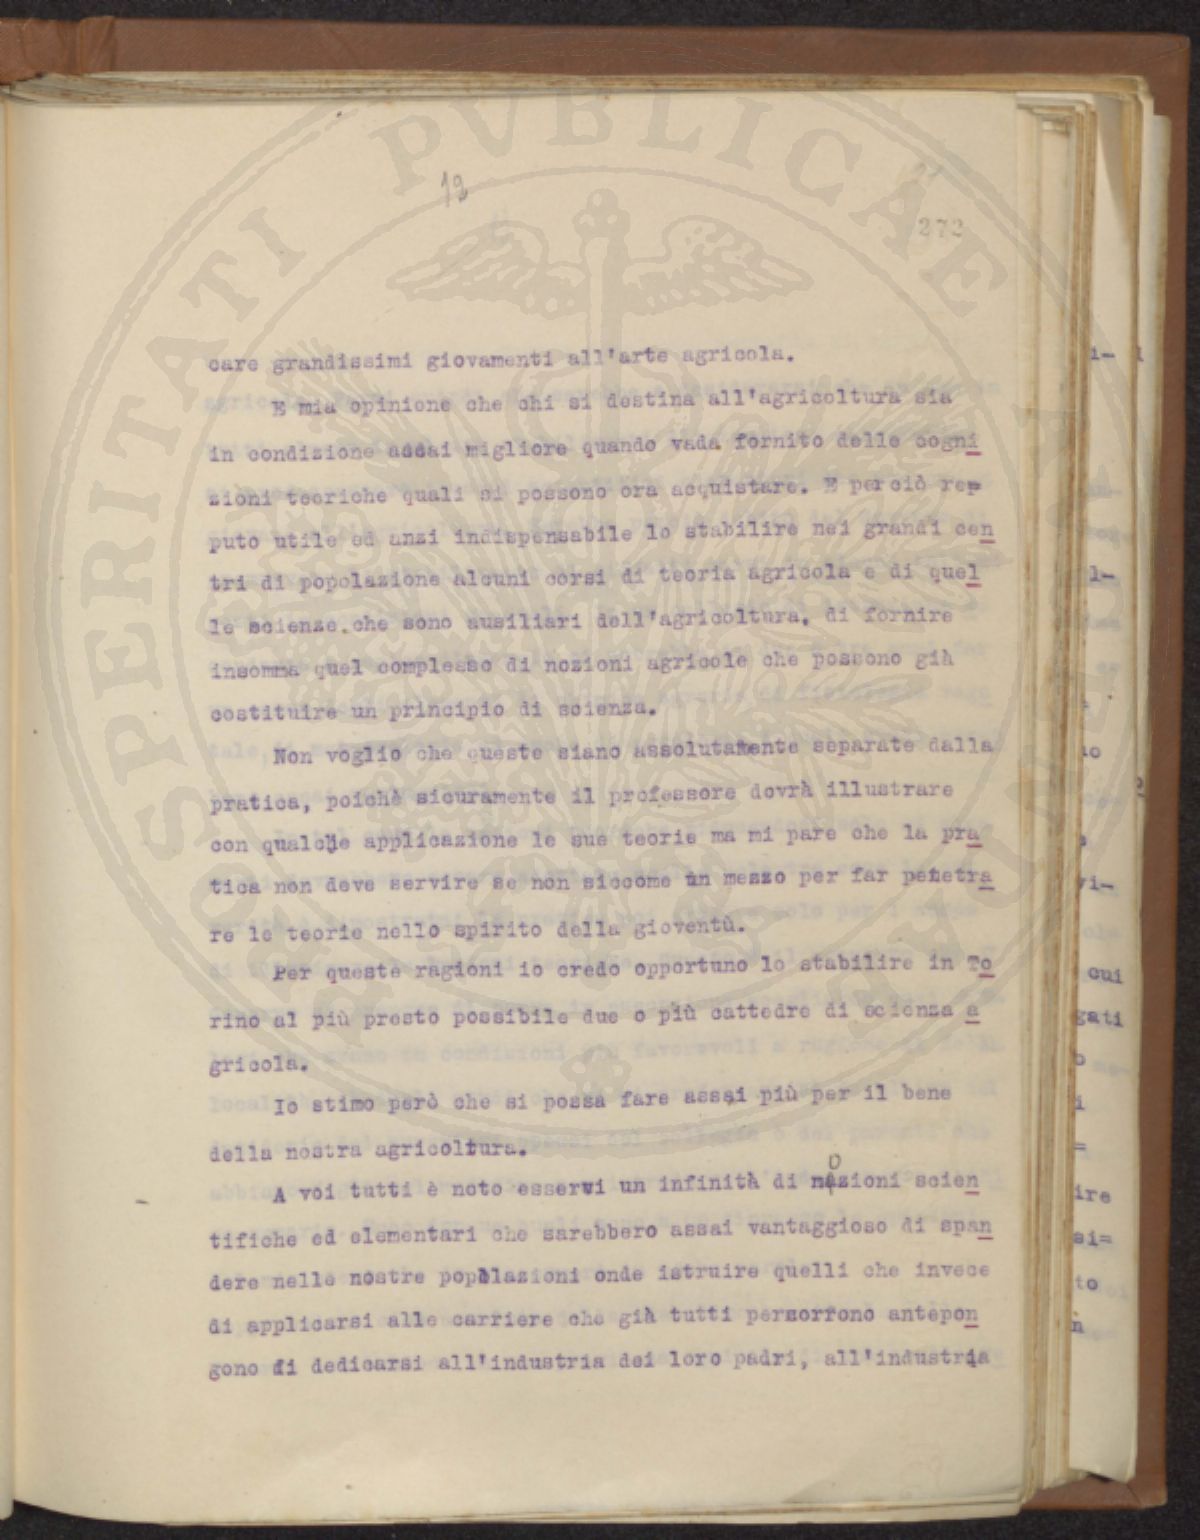 PROSPERITATI PVBLICAE AVGENDAE
12
272
care grandissimi giovamenti all'arte agricola.
E mia opinione che chi si destina all'agricoltura sia
in condizione assai migliore quando vada fornito delle cogni
zioni teoriche quali si possono ora acquistare. E perciò re-
puto utile ed anzi indispensabile lo stabilire nei grandi cen
tri di popolazione alcuni corsi di teoria agricola e di quel
le scienze che sono ausiliari dell'agricoltura, di fornire
insomma quel complesso di nozioni agricole che possono già
costituire un principio di scienza.
Non voglio che queste siano assolutamente separate dalla
pratica, poichè sicuramente il professore dovrà illustrare
con qualche applicazione le sue teorie ma mi pare che la pra
tica non deve servire se non siccome un mezzo per far penetra
re le teorie nello spirito della gioventù.
Per queste ragioni io credo opportuno lo stabilire in To
rino al più presto possibile due o più cattedre di scienza a
gricola.
Io stimo però che si possa fare assai più per il bene
della nostra agricoltura.
A voi tutti è noto esservi un infinità di nozioni scien
tifiche ed elementari che sarebbero assai vantaggioso di span
dere nelle nostre popolazioni onde istruire quelli che invece
di applicarsi alle carriere che già tutti perzorrono antepon
gono di dedicarsi all'industria dei loro padri, all'industria